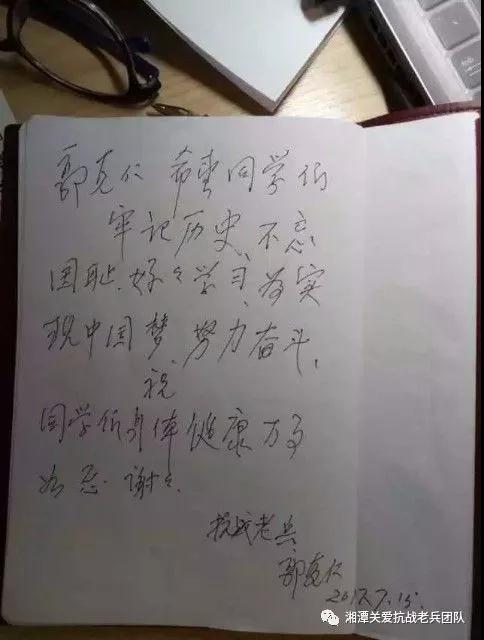 郭克仁 希望同学们
牢记历史、不忘
国耻、好々学习、为实
现中国梦、努力奋斗、
祝
同学们身体健康 万事
如意、谢々、
抗战老兵
郭克仁
2017.7.15.
湘潭关爱抗战老兵团队